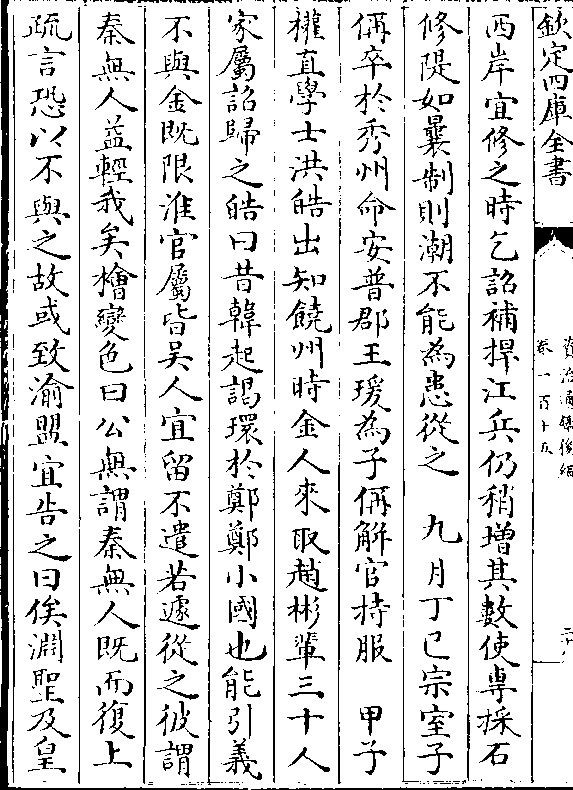 欽定四庫全書
資治通鑑後編
卷一百十五
西岸宜修之時乞詔補捍江兵仍稍增其數使專採石
修隄如曩制則潮不能為患從之　九月丁巳宗室子
偁卒於秀州命安普郡王瑗為子偁解官持服　甲子
權直學士洪皓出知饒州時金人來取趙彬輩三十人
家屬詔歸之皓曰昔韓起謁環於鄭鄭小國也能引義
不與金既限淮官屬皆吴人宜留不遣若遽從之彼謂
秦無人益輕我矣檜變色曰公無謂秦無人既而復上
疏言恐以不與之故或致渝盟宜告之曰俟淵聖及皇